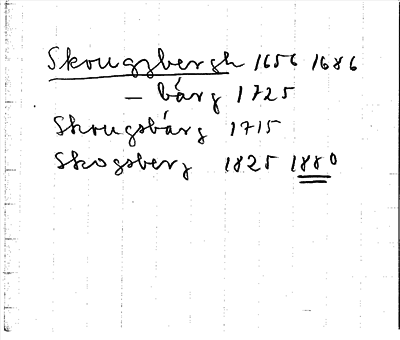 Skougsbergh 1656 1686
— bärg 1725
Skougsbärg 1715
Skogsberg 1825 1880